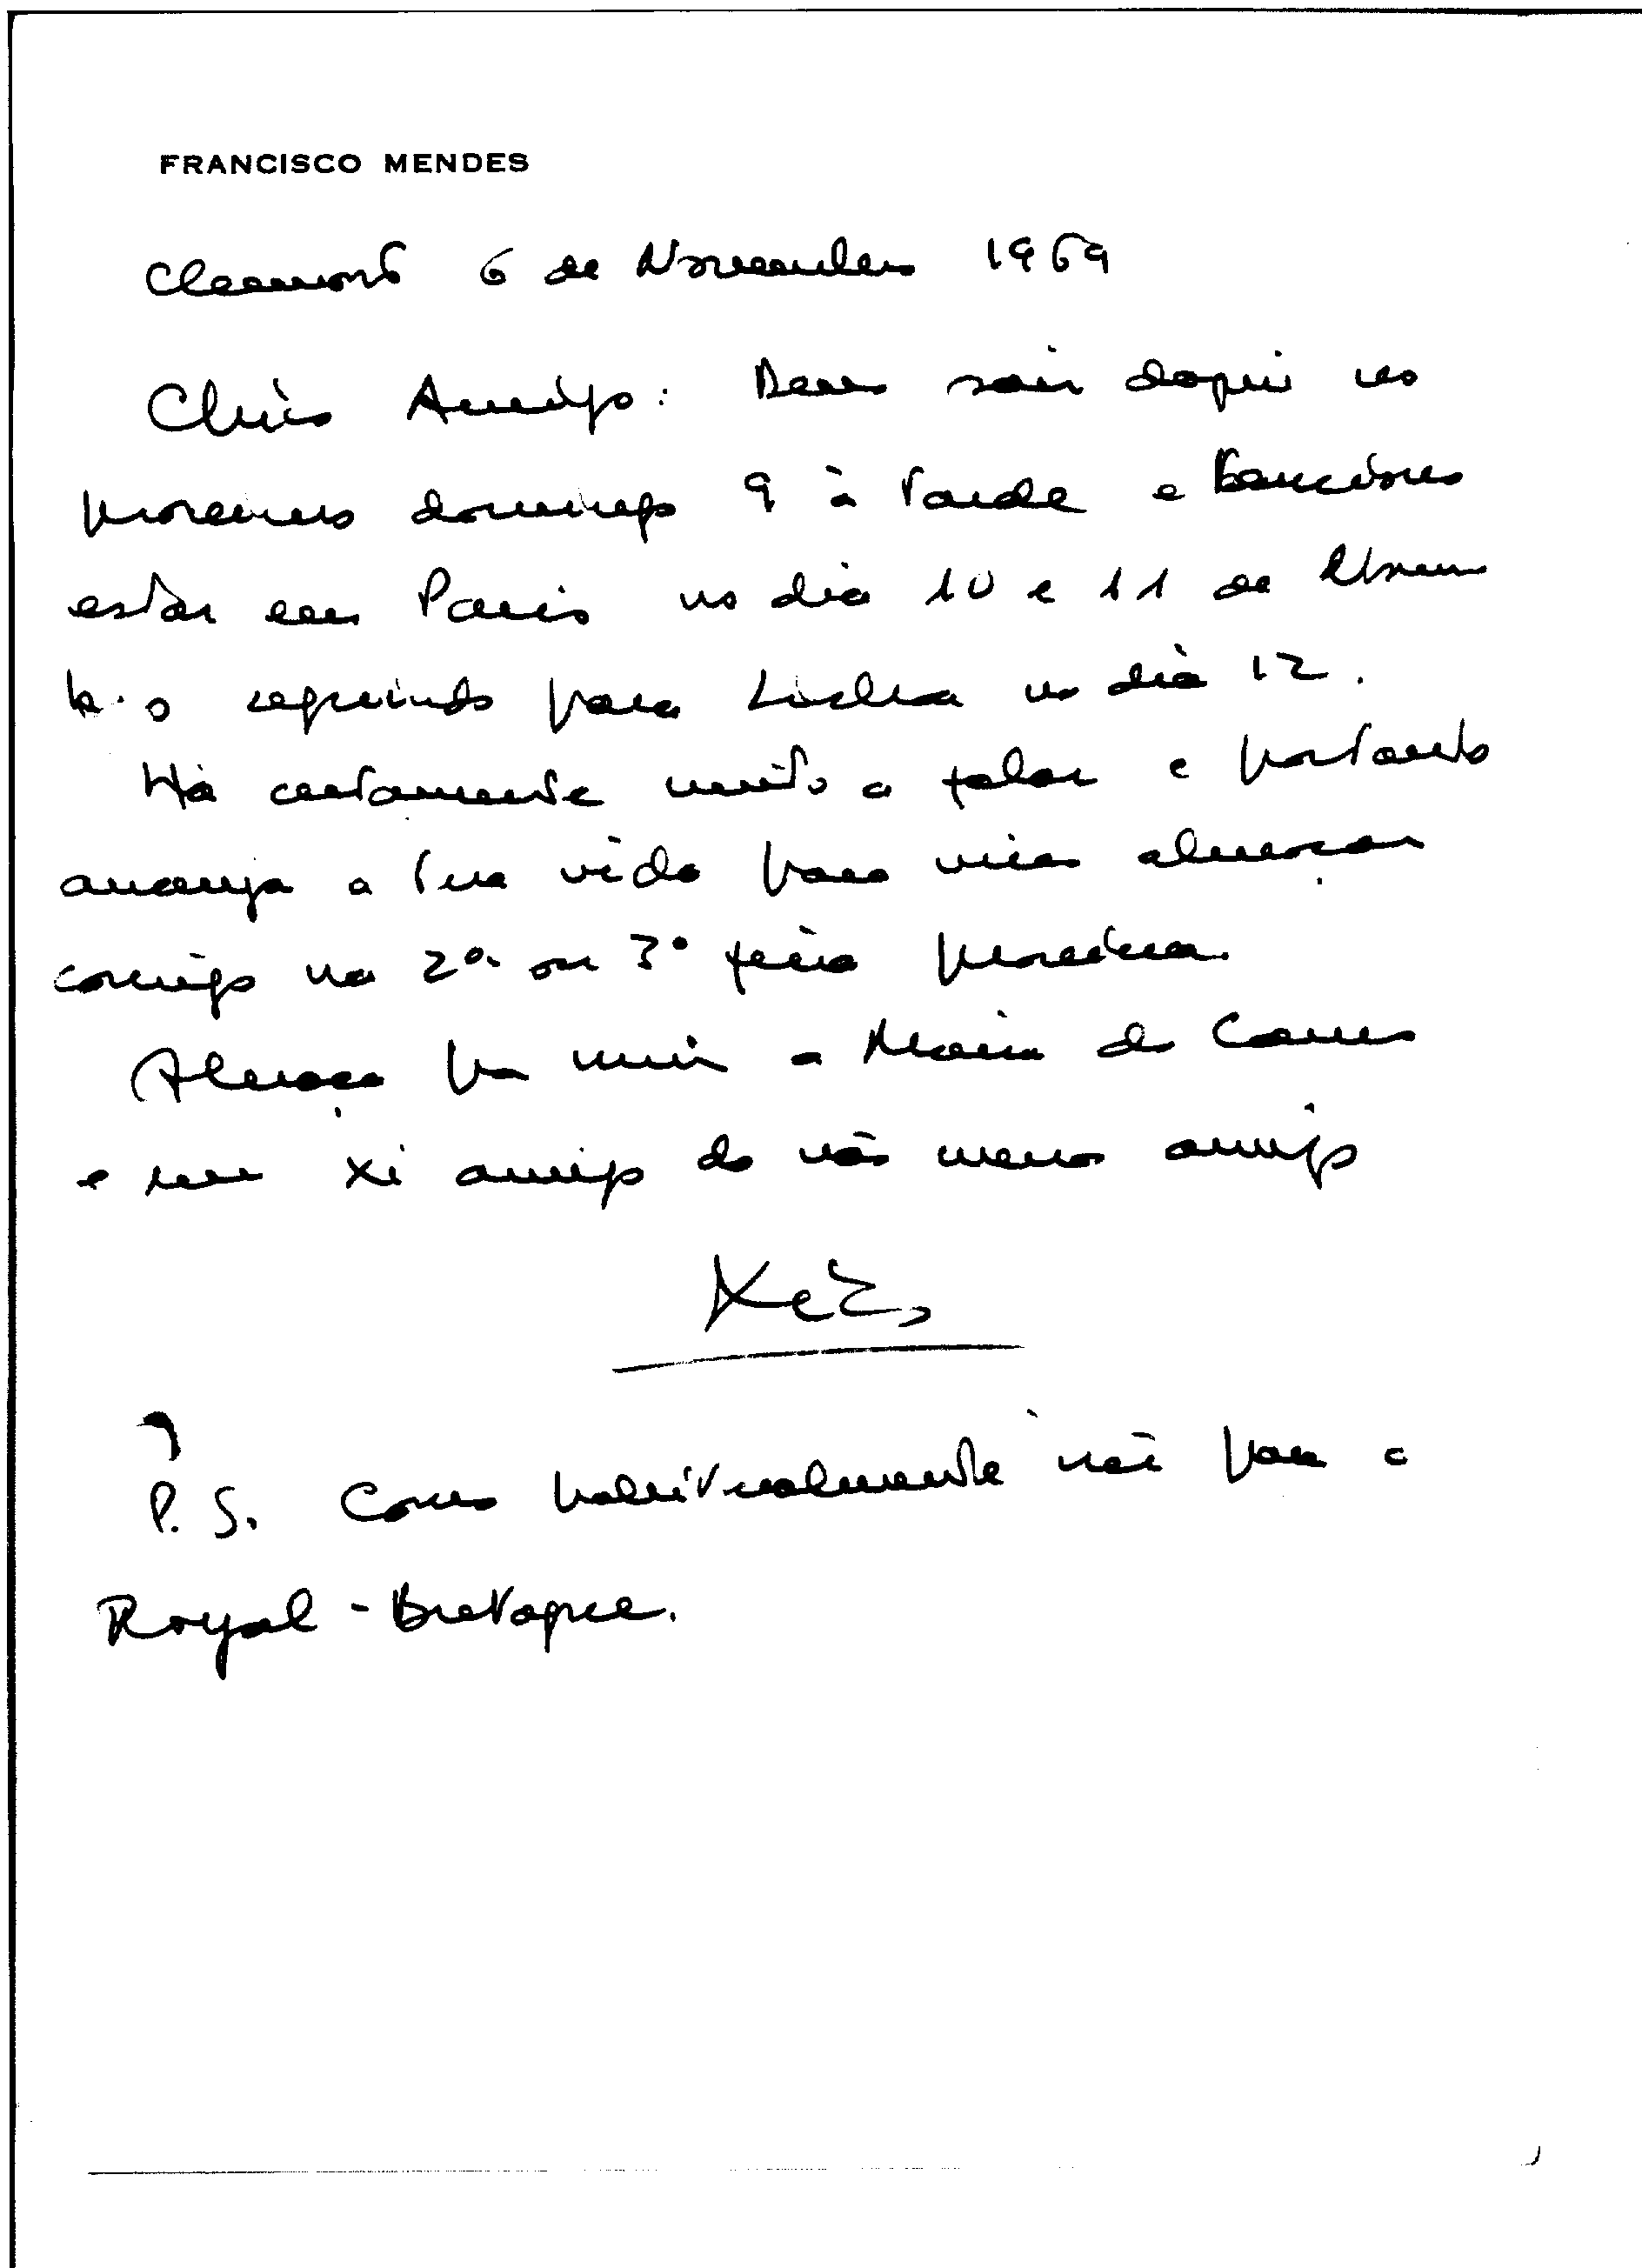 FRANCISCO MENDES
Clermont 6 de Novembro 1969
Amigo: Devo sair daqui no
proximo domingo 9 à tarde e tenciono
estar em Paris no dia 10 e 11 de Novem
bro seguindo para Lisboa no dia 12.
Há certamente muito a falar e portanto
arranja a tua vida para vires almoçar
comigo na 2ª ou 3ª feira proxima.
Abraça por mim a Maria do Carmo
e um xi amigo do não menos amigo
P.S. Como habitualmente vou para o
Royal-Bretagne.